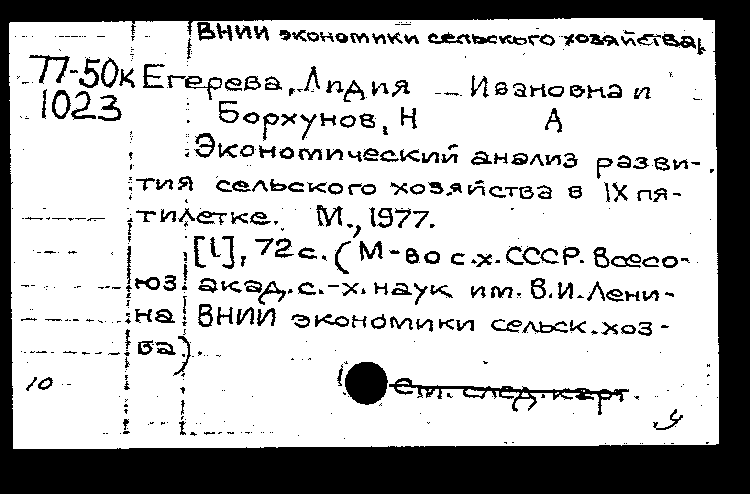 ВНИИ экономики сельского хозяйства,
77-50к Егерева, Лидия Ивановна и
1023 Борхунов, Н А
Экономический анализ разви-
тия сельского хозяйства в IX пя-
тилетке. М., 1977.
[1], 72 с. (М-во с.х. СССР. Всесо-
юз. акад. с.-х. наук им. В.И. Лени-
на ВНИИ экономики сельск. хоз-
ва).
10 См. след. карт.